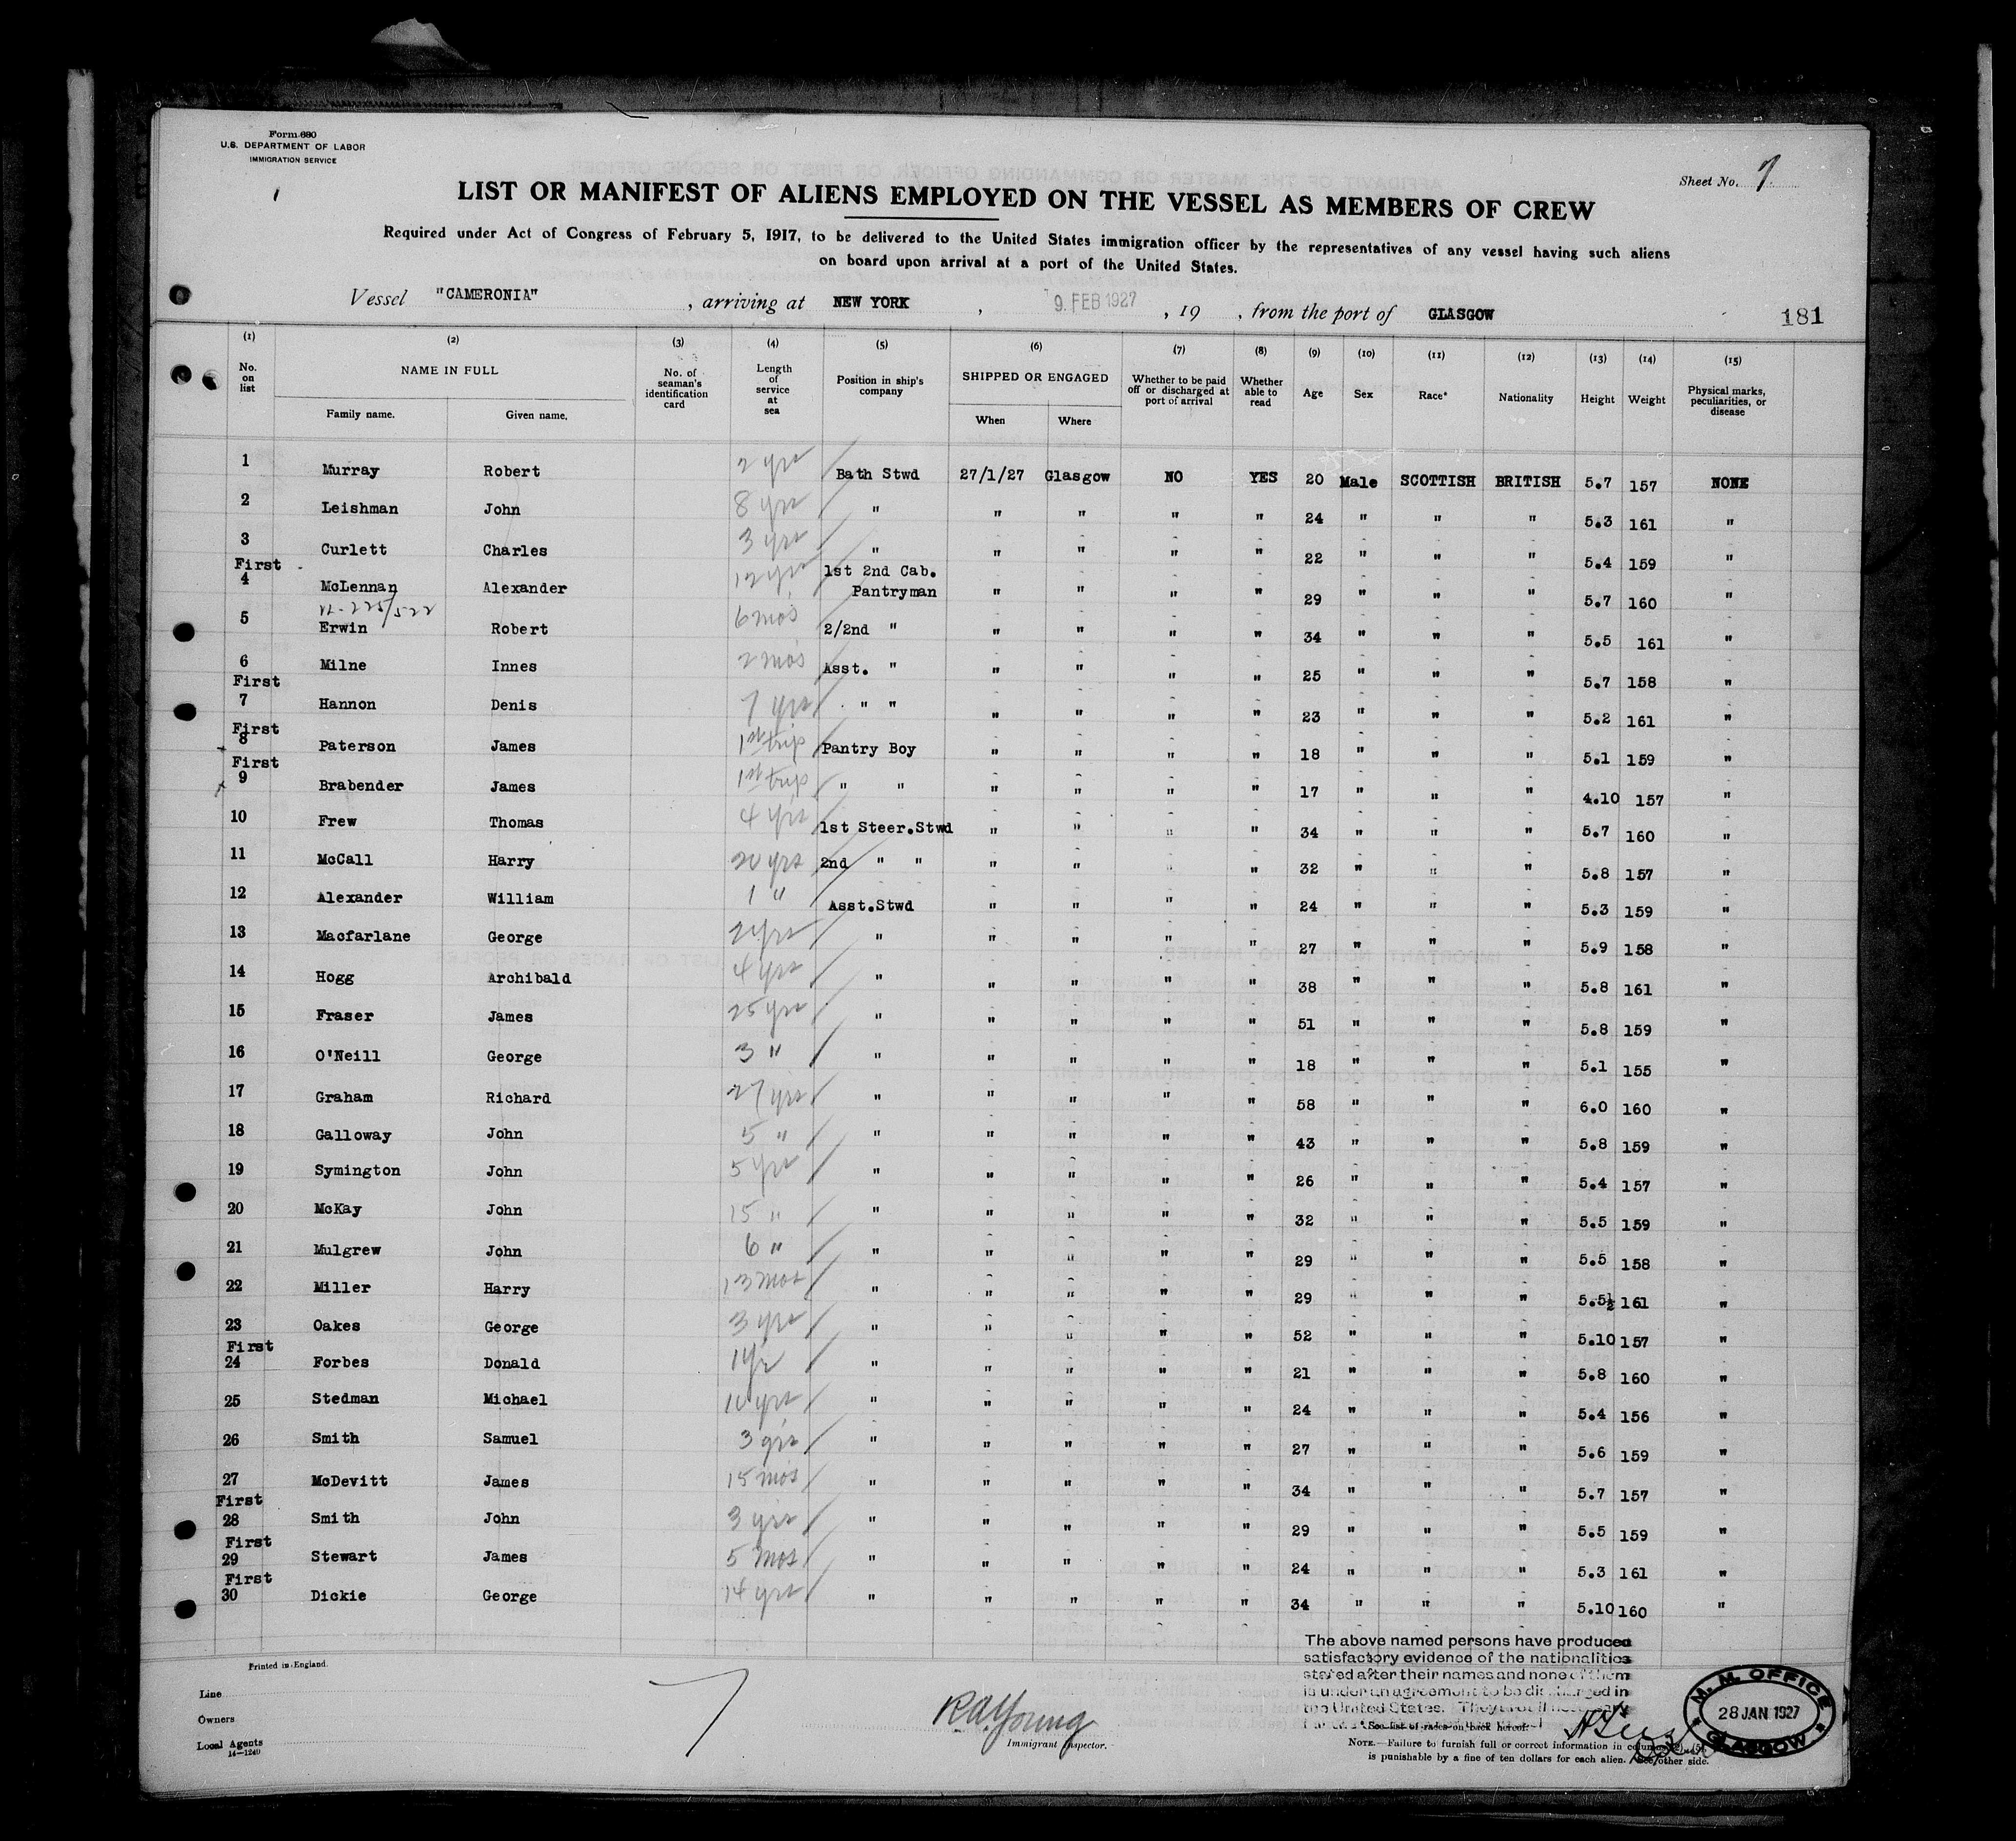 Form 680
U.S. DEPARTMENT OF LABOR
IMMIGRATION SERVICE
Sheet No. 7.
LIST OR MANIFEST OF ALIENS EMPLOYED ON THE VESSEL AS MEMBERS OF CREW
Required under Act of Congress of February 5, 1917, to be delivered to the United States immigration officer by the representatives of any vessel having such aliens
on board upon arrival at a port of the United States.
Vessel "CAMERONIA", arriving at NEW YORK, 9. FEB 1927, 19 , from the port of GLASGOW 181
(1) (2) (3) (4) (5) (6) (7) (8) (9) (10) (11) (12) (13) (14) (15)
No. on list NAME IN FULL Family name. Given name. No. of seaman's identification card Length of service at sea Position in ship's company SHIPPED OR ENGAGED When Where Whether to be paid off or discharged at port of arrival Whether able to read Age Sex Race* Nationality Height Weight Physical marks, peculiarities, or disease
1 Murray Robert 2 yrs Bath Stwd 27/1/27 Glasgow NO YES 20 Male SCOTTISH BRITISH 5.7 157 NONE
2 Leishman John 8 yrs " " " " " 24 " " " 5.3 161 "
3 Curlett Charles 3 yrs " " " " " 22 " " " 5.4 159 "
First
4 McLennan Alexander 12 yrs 1st 2nd Cab. Pantryman " " " " 29 " " " 5.7 160 "
5 Erwin Robert 6 mos 2/2nd " " " " " 34 " " " 5.5 161 "
6 Milne Innes 2 mos Asst. " " " " " 25 " " " 5.7 158 "
First
7 Hannon Denis 7 yrs " " " " " " 23 " " " 5.2 161 "
First
8 Paterson James 1st trip Pantry Boy " " " " 18 " " " 5.1 159 "
First
9 Brabender James 1st trip " " " " " " 17 " " " 4.10 157 "
10 Frew Thomas 4 yrs 1st Steer.Stwd " " " " 34 " " " 5.7 160 "
11 McCall Harry 20 yrs 2nd " " " " " " 32 " " " 5.8 157 "
12 Alexander William 1 " Asst.Stwd " " " " 24 " " " 5.3 159 "
13 Macfarlane George yrs " " " " " 27 " " " 5.9 158 "
14 Hogg Archibald 4 yrs " " " " " 38 " " " 5.8 161 "
15 Fraser James 25 yrs " " " " " 51 " " " 5.8 159 "
16 O'Neill George 3 " " " " " " 18 " " " 5.1 155 "
17 Graham Richard 27 yrs " " " " " 58 " " " 6.0 160 "
18 Galloway John 5 " " " " " " 43 " " " 5.8 159 "
19 Symington John 5 yrs " " " " " 26 " " " 5.4 157 "
20 McKay John 15 " " " " " " 32 " " " 5.5 159 "
21 Mulgrew John 6 " " " " " " 29 " " " 5.5 158 "
22 Miller Harry 13 mos " " " " " 29 " " " 5.5½ 161 "
23 Oakes George 3 yrs " " " " " 52 " " " 5.10 157 "
First
24 Forbes Donald 1 yr " " " " " 21 " " " 5.8 160 "
25 Stedman Michael 10 yrs " " " " " 24 " " " 5.4 156 "
26 Smith Samuel 3 yrs " " " " " 27 " " " 5.6 159 "
27 McDevitt James 15 mos " " " " " 34 " " " 5.7 157 "
First
28 Smith John 3 yrs " " " " " 29 " " " 5.5 159 "
First
29 Stewart James 5 mos " " " " " 24 " " " 5.3 161 "
First
30 Dickie George 14 yrs " " " " " 34 " " " 5.10 160 "
The above named persons have produced
satisfactory evidence of the nationalities
stated after their names and none of them
is under an agreement to be discharged in
the United States.
Printed in England.
Line
Owners
Local Agents
14-1240
7
R.A. Young
Immigrant Inspector.
*See list of races on back hereof.
NOTE.—Failure to furnish full or correct information in columns
is punishable by a fine of ten dollars for each alien. See other side.
M. M. OFFICE
28 JAN 1927
GLASGOW